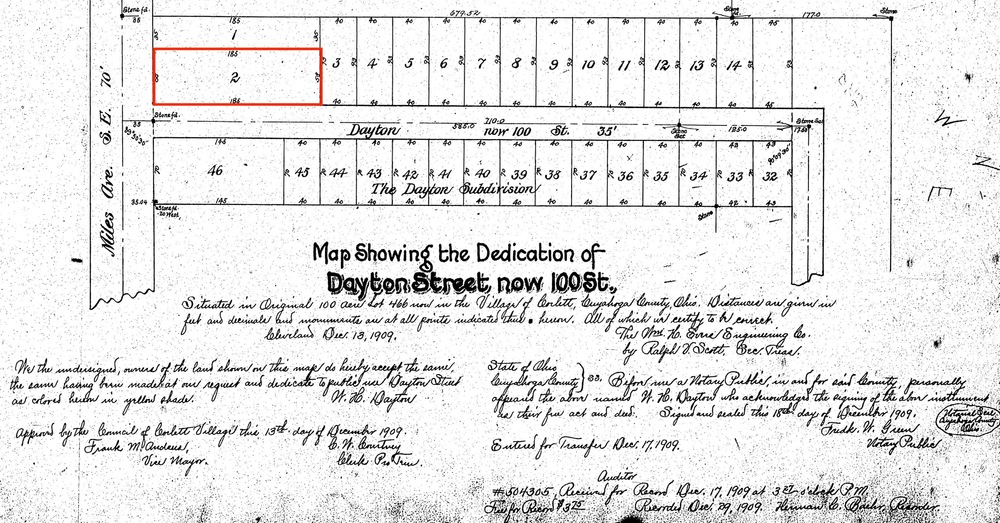 679.52
177.0
Stone fd.
Stone
Stone
35
185
40 40 40 40 40 40 40 40 40 40 40 40 45
1
185
2
3 4 5 6 7 8 9 10 11 12 13 14
185
40 40 40 40 40 40 40 40 40 40 40 40 45
Miles Ave. S. E. 70'
Stone fd.
710.0
Dayton 585.0 now 100 St. 35'
Stone Set
125.0
Stone Set
35
145 40 40 40 40 40 40 40 40 40 40 40 40 42 43
46 45 44 43 42 41 40 39 38 37 36 35 34 33 32
The Dayton Subdivision
35.04
145 40 40 40 40 40 40 40 40 40 40 40 40 42 43
Stone fd.
.20 West.
Stone
N
E
Map Showing the Dedication of
Dayton Street, now 100 St.,
Situated in Original 100 acre Lot 466 now in the Village of Corlett, Cuyahoga County, Ohio. Distances are given in
feet and decimals and monuments are at all points indicated thus • hereon. All of which we certify to be correct.
Cleveland Dec. 13, 1909.
The Wm. H. Evers Engineering Co.
by Ralph V. Scott, Sec. Treas.
We the undersigned, owners of the land shown on this map do hereby accept the same,
the same having been made at our request and dedicate to public use Dayton Street
as colored hereon in yellow shade.
W. H. Dayton
Approved by the Council of Corlett Village this 13th day of December 1909.
Frank M. Andrews,
Vice Mayor.
C. W. Courtney
Clerk Pro Tem.
State of Ohio
Cuyahoga County } SS. Before me a Notary Public, in and for said County, personally
appeared the above named W. H. Dayton who acknowledged the signing of the above instrument
as their free act and deed. Signed and sealed this 18th day of December 1909.
Fredk. W. Green
Notary Public
Notarial Seal
Cuyahoga County
Ohio
Entered for Transfer Dec. 17, 1909.
Auditor
#504305, Received for Record Dec. 17, 1909 at 3 27 o'clock P.M.
Fee for Record $3 75 Recorded Dec. 29, 1909. Herman C. Baehr, Recorder.